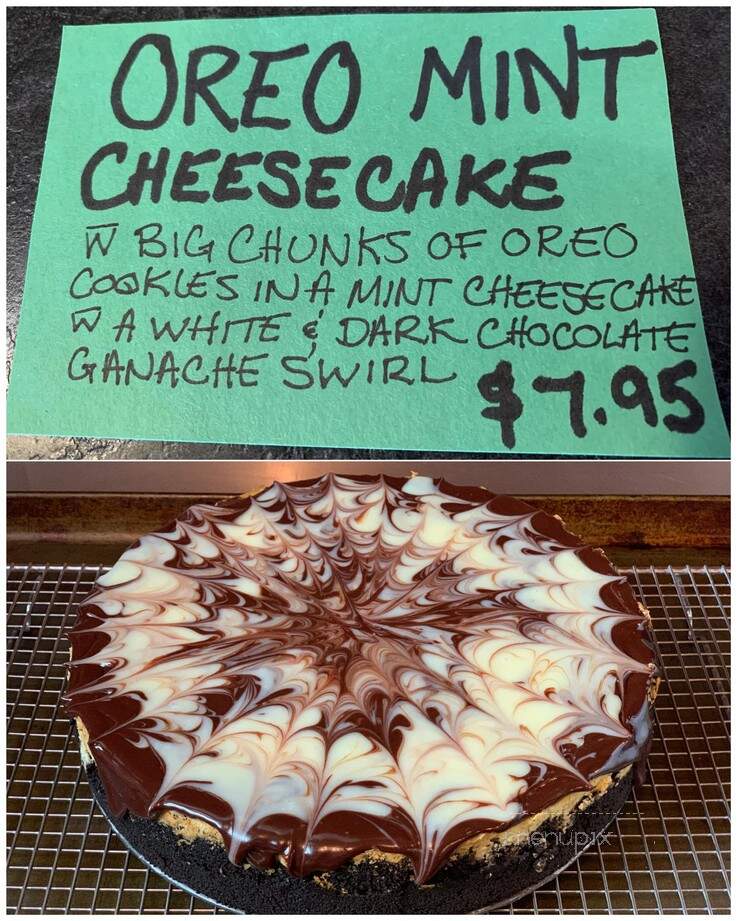 OREO MINT
CHEESECAKE
W̅ BIG CHUNKS OF OREO
COOKIES IN A MINT CHEESECAKE
W̅ A WHITE & DARK CHOCOLATE
GANACHE SWIRL $7.95
menupix